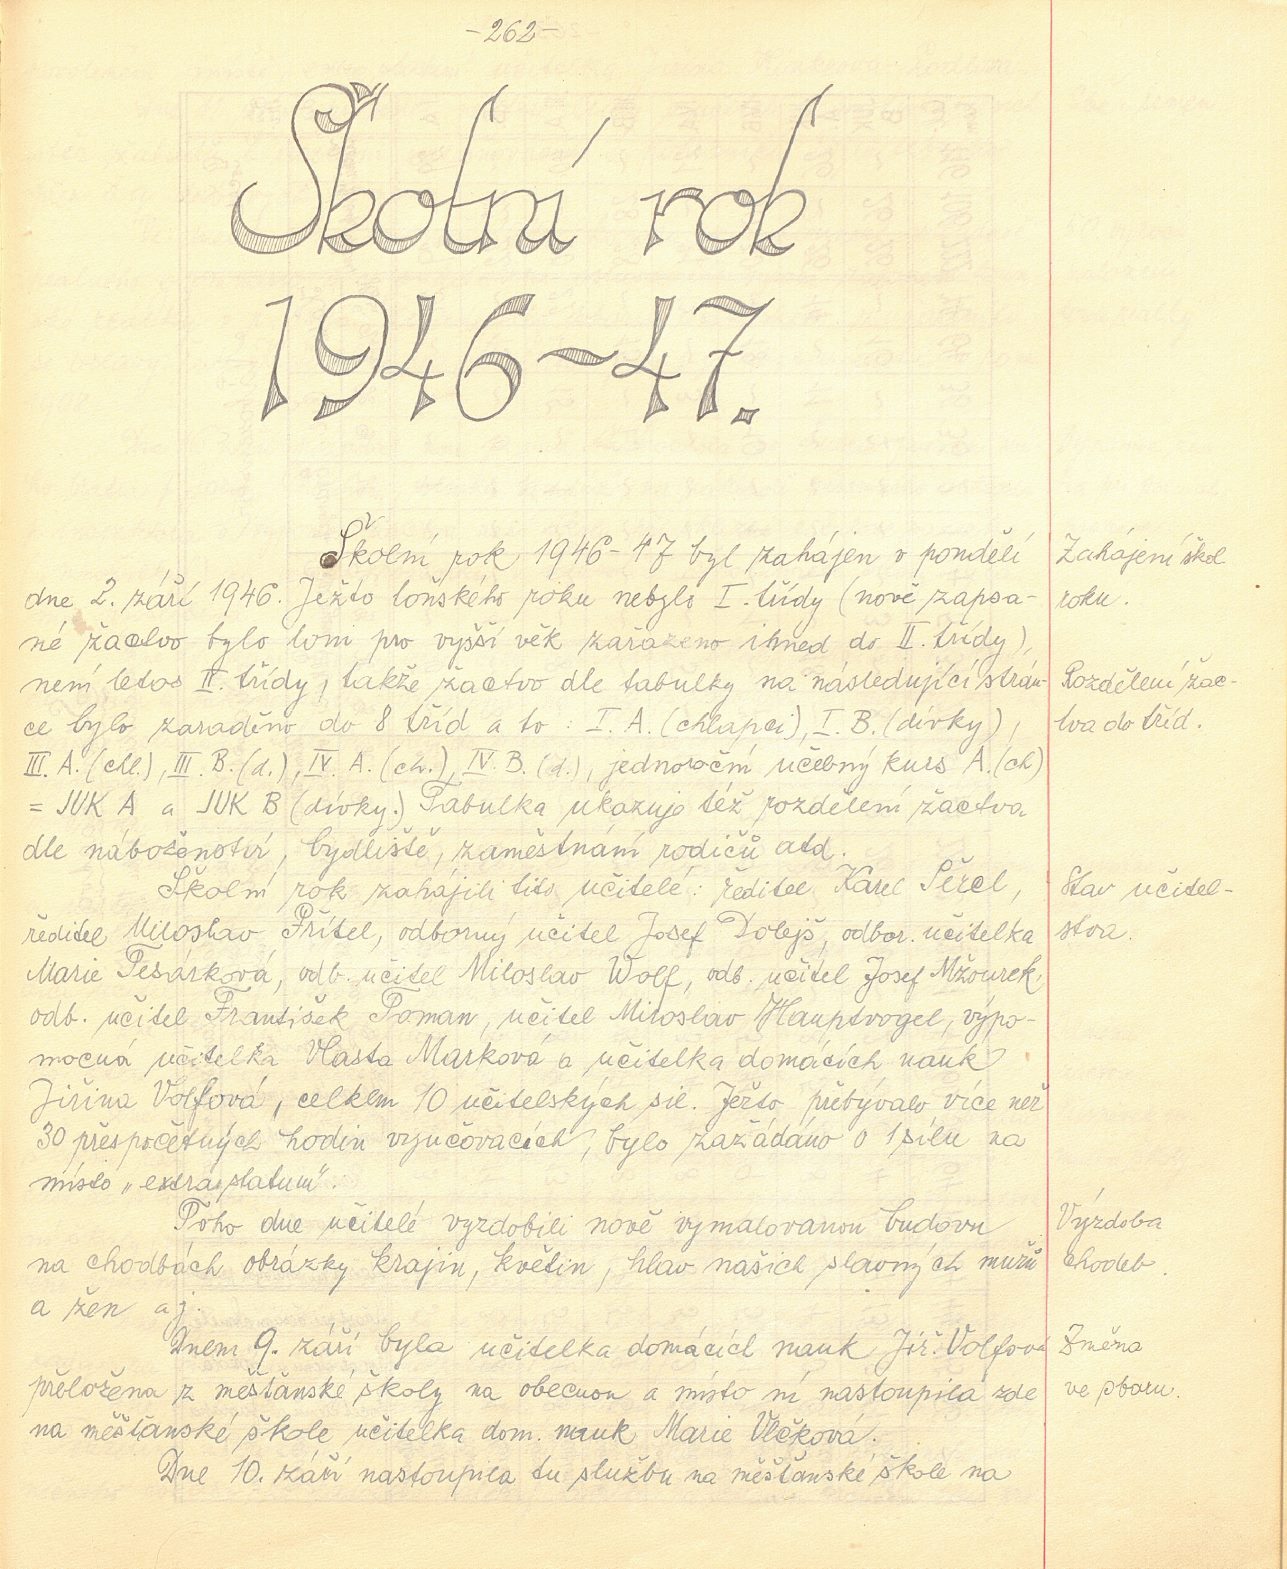 -262-
Školní rok
1946-47.
Školní rok 1946-47 byl zahájen v pondělí
Zahájení škol.
dne 2. září 1946. Ježto loňského roku nebylo I. třídy (nově zapsa-
roku.
né žactvo bylo loni pro vyšší věk zařazeno ihned do II. třídy),
není letos II. třídy, takže žactvo dle tabulky na následující strán-
Rozdělení žac-
ce bylo zaraděno do 8 tříd a to: I. A. (chlapci), I. B. (dívky),
tva do tříd.
III. A. (chl.), III. B. (d.), IV. A. (ch.), IV. B. (d.), jednoroční učebný kurs A. (ch)
= JUK A a JUK B (dívky.) Tabulka ukazuje též rozdělení žactva
dle náboženství, bydliště, zaměstnání rodičů atd.
Školní rok zahájili tito učitelé: ředitel Karel Šércl,
Stav učitel-
ředitel Miloslav Přítel, odborný učitel Josef Dolejš, odbor. učitelka
stva.
Marie Tesárková, odb. učitel Miloslav Wolf, odb. učitel Josef Mžourek,
odb. učitel František Toman, učitel Miloslav Hauptvogel, výpo-
mocná učitelka Vlasta Marková a učitelka domácích nauk
Jiřina Volfová, celkem 10 učitelských sil. Ježto přebývalo více než
30 přespočetných hodin vyučovacích, bylo zažádáno o 1 sílu na
místo „extra statum".
Toho dne učitelé vyzdobili nově vymalovanou budovu
Výzdoba
na chodbách obrázky krajin, květin, hlav našich slavných mužů
chodeb.
a žen aj.
Dnem 9. září byla učitelka domácích nauk Jiř. Volfová
Změna
přeložena z měšťanské školy na obecnou a místo ní nastoupila zde
ve sboru.
na měšťanské škole učitelka dom. nauk Marie Vlčková.
Dne 10. září nastoupila tu službu na měšťanské škole na